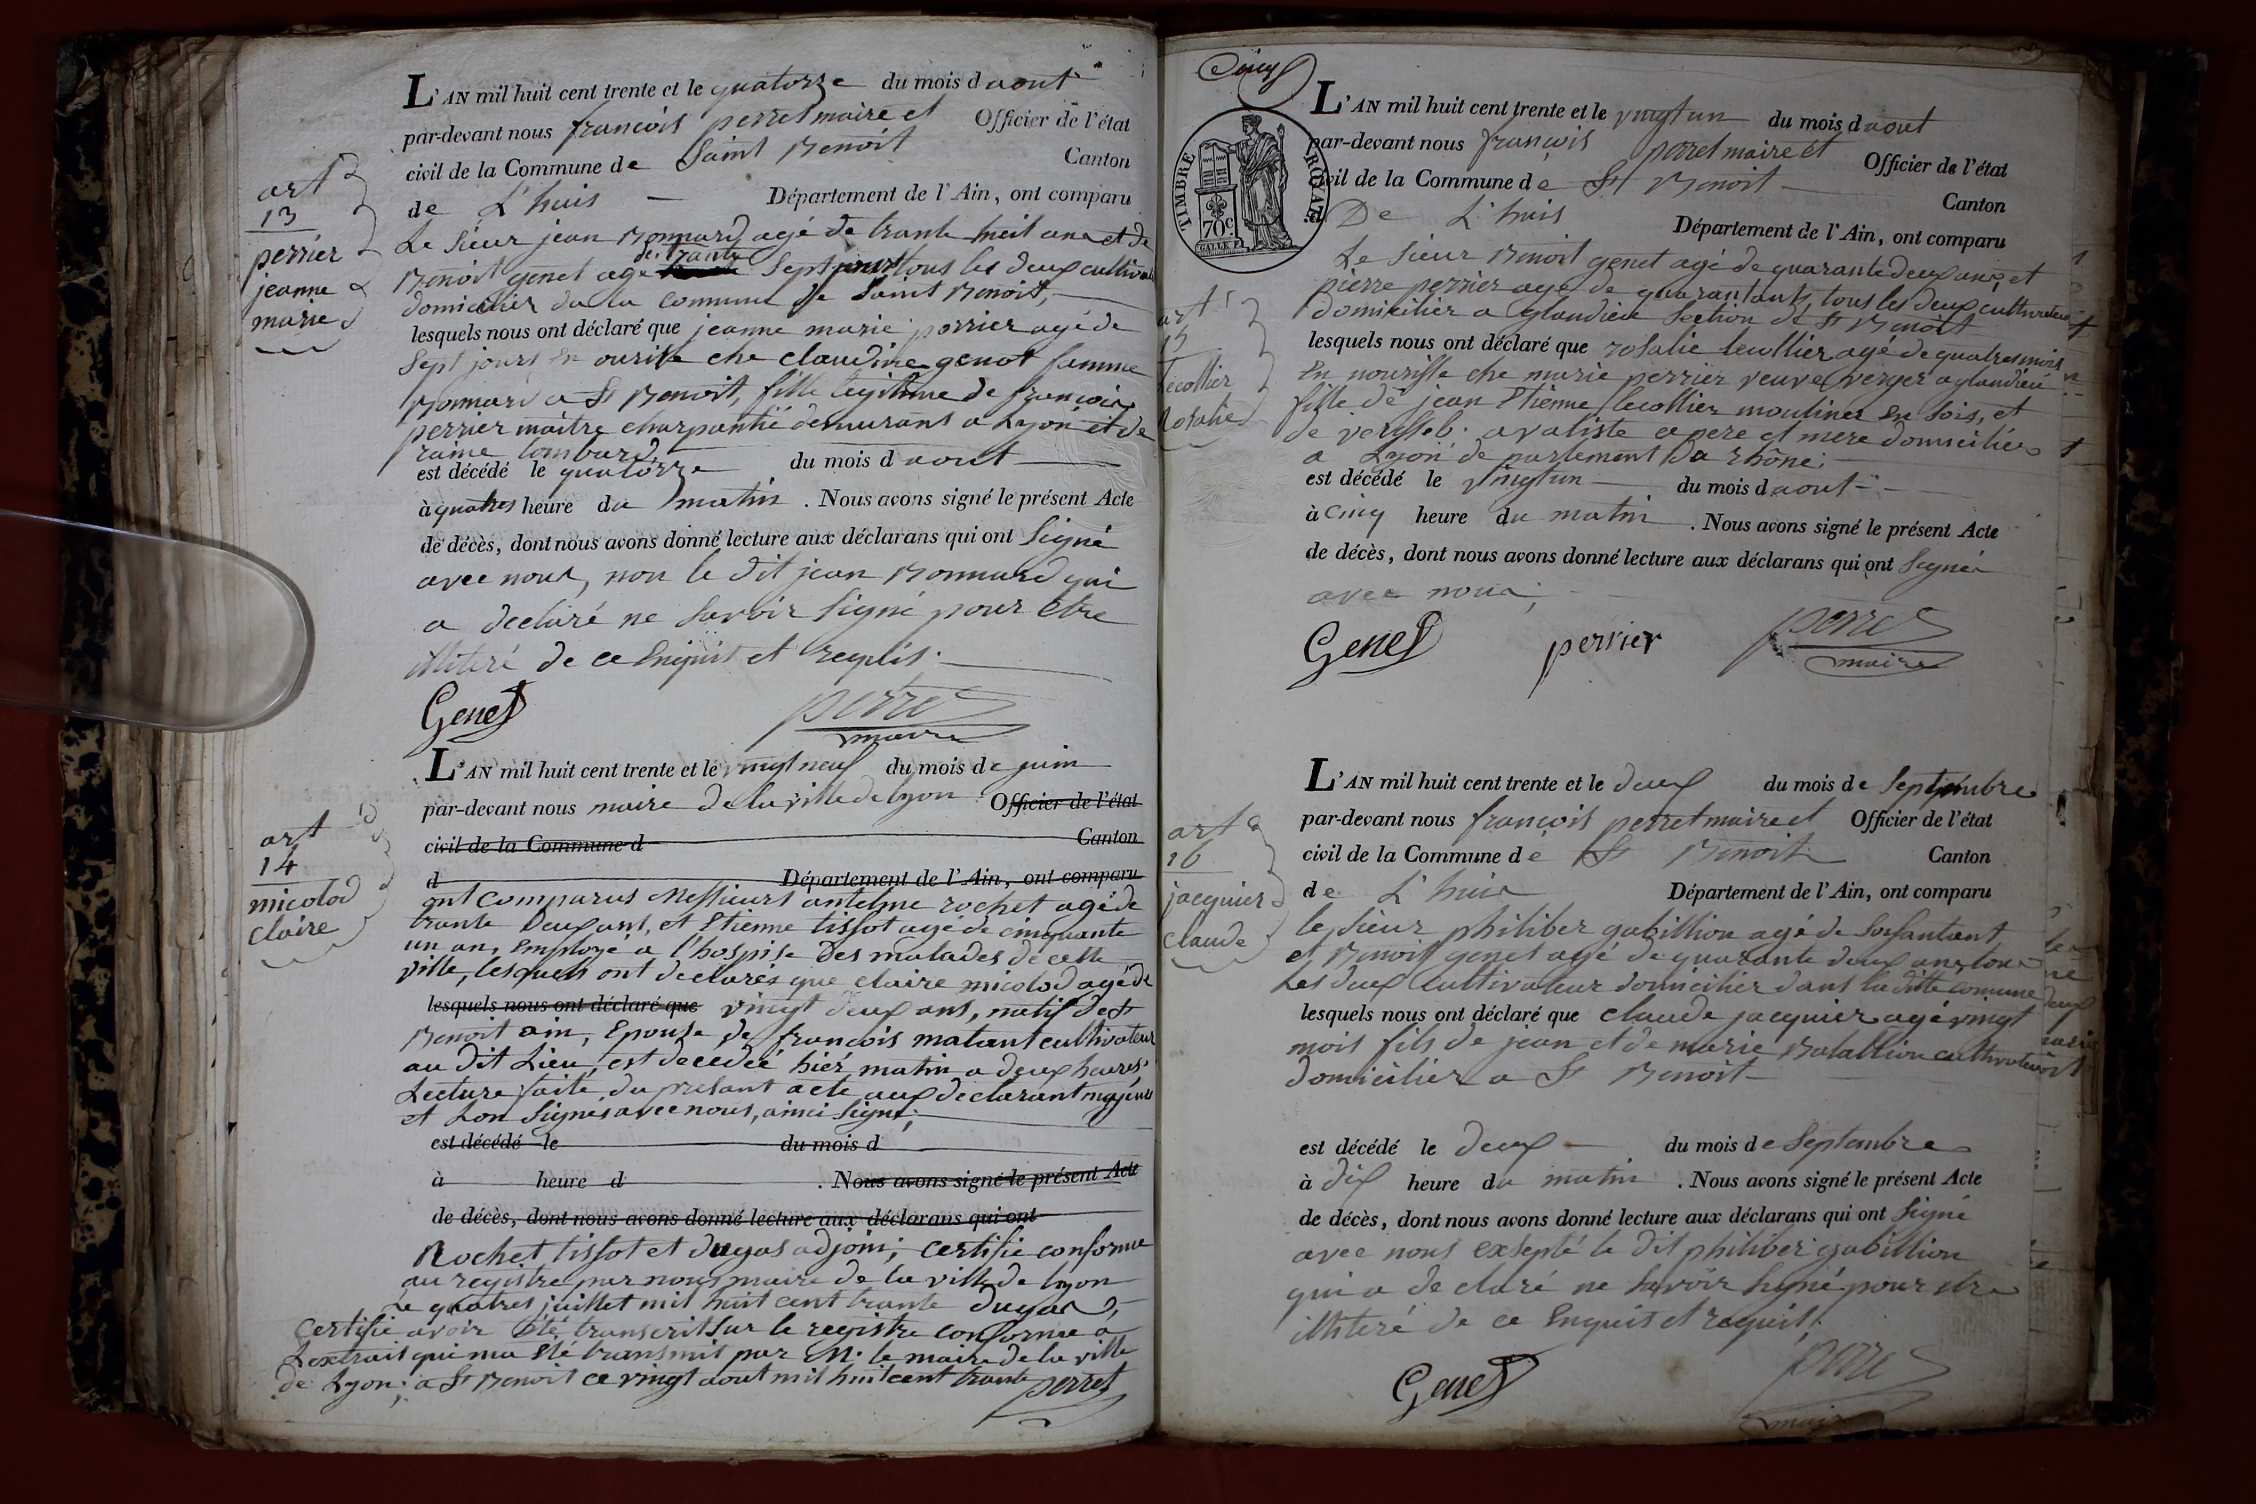 L'AN mil huit cent trente et le quatorze du mois d aout
par-devant nous françois perret maire et Officier de l'état
civil de la Commune de Saint Benoit Canton
de L'huis Département de l'Ain, ont comparu
Le sieur jean Bonnard agé de trante huit ans et de
Benoit genet agé de trante sept tous les deux cultiva
domicilier de la commune de Saint Benoit,
lesquels nous ont déclaré que jeanne marie perrier agé de
sept jours en che claudine genet famme
Bonnard a St Benoit, fille legitime de françois
perrier maitre charpantié demurant a Lyon et de
lombard
est décédé le quatorze du mois d aout
à quatres heure du matin . Nous avons signé le présent Acte
de décès, dont nous avons donné lecture aux déclarans qui ont Signé
avec nous, non le dit jean Bonnard qui
a declaré ne savoir signé pour etre
illiteré de ce enquis et requis.
Genet perret
maire
art
13
perrier
jeanne
marie
L'AN mil huit cent trente et le vingt neuf du mois de juin
par-devant nous maire de la ville de lyon Officier de l'état
civil de la Commune d Canton
d Département de l'Ain, ont comparu
ont comparus Messieurs antelme rochet agé de
trante deux ans, et Etienne tissot agé de cinquante
un an, employé a l'hospise des malades de cette
ville, lesquels ont declarés que claire micolod agé de
lesquels nous ont déclaré que vingt deux ans, natif de St
Benoit ain, Epouse de françois matant cultivateur
au dit Lieu, est decedée hier matin a deux heures,
Lecture faite du presant acte aux declarant majeurs
et Lon Signés avec nous, ainsi signé,
est décédé le du mois d
à heure d . Nous avons signé le présent Acte
de décès, dont nous avons donné lecture aux déclarans qui ont
Rochet tissot et dugas adjoin; certifie conforme
au registre par nous maire de la ville de lyon
Le quatres juillet mil huit cent trante dugas,
certifie avoir été transcrit sur le registre conforme a
Lextrait qui ma été transmit par M. le maire de la ville
de Lyon; a St Benoit ce vingt aout mil huit cent trante perret
art
14
micolod
claire
Cinq
TIMBRE ROYAL
70c
GALLE F.
L'AN mil huit cent trente et le vingt un du mois d aout
par-devant nous françois perret maire et Officier de l'état
civil de la Commune de St Benoit Canton
De L'huis Département de l'Ain, ont comparu
Le sieur Benoit genet agé de quarante deux ans, et
pierre perrier agé de quarantants, tous les deux cultivateur
domicilier a glandieu section de St Benoit
lesquels nous ont déclaré que rosalie lecollier agé de quatres mois
en nourisse che marie perrier veuve verger a glandieu
fille de jean Etienne lecollier moulines en sois, et
de ce pere et mere domiciliés
a Lyon departement du rhône.
est décédé le vingt un du mois d aout
à cinq heure du matin . Nous avons signé le présent Acte
de décès, dont nous avons donné lecture aux déclarans qui ont Signé
avec nous,
Genet perrier perret
maire
art
15
Lecollier
Rosalie
L'AN mil huit cent trente et le deux du mois de Septembre
par-devant nous françois perret maire et Officier de l'état
civil de la Commune de St Benoit Canton
de L'huis Département de l'Ain, ont comparu
le sieur philiber gubillion agé de soisantant,
et Benoit genet agé de quarante deux ans, tous
Les deux Cultivateur domicilier dans la ditte comune
lesquels nous ont déclaré que claude jacquier agé vingt
mois fils de jean et de marie cultivateur
domicilier a St Benoit
est décédé le deux du mois de Septembre
à dix heure du matin . Nous avons signé le présent Acte
de décès, dont nous avons donné lecture aux déclarans qui ont Signé
avec nous exsepté le dit philiber gubillion
qui a declaré ne savoir signé pour etre
illiteré de ce enquis et requis.
Genet perret
maire
art
16
jacquier
claude